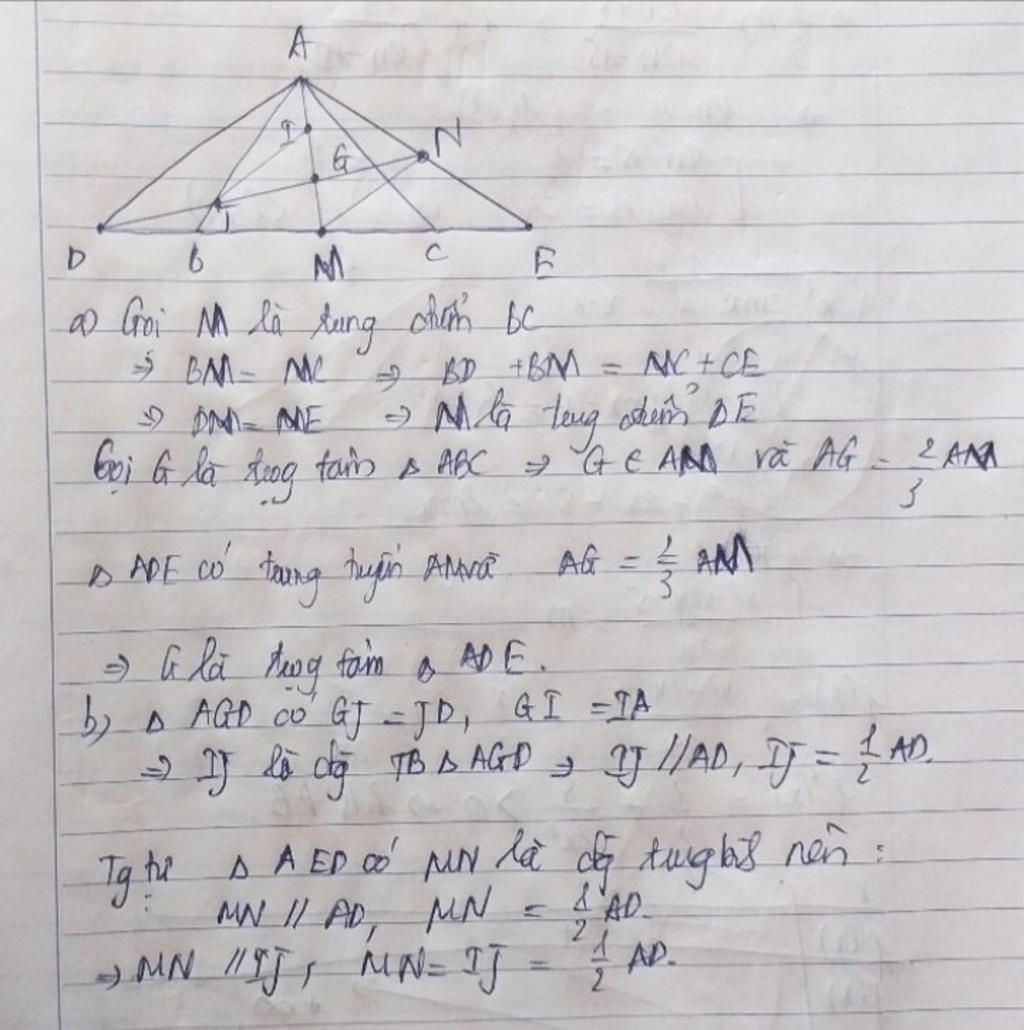 A
I
G
N
J
D B M C E
a) Gọi M là trung điểm BC
⇒ BM = MC ⇒ BD + BM = MC + CE
⇒ DM = ME ⇒ M là trung điểm DE
Gọi G là trọg tâm Δ ABC ⇒ G ∈ AM và AG = 2/3 AM
Δ ADE có trung tuyến AM và AG = 2/3 AM
⇒ G là trọg tâm Δ ADE.
b) Δ AGD có GJ = JD, GI = IA
⇒ IJ là đg TB Δ AGD ⇒ IJ // AD, IJ = 1/2 AD.
Tg tự Δ AED có MN là đg trung bì nên :
MN // AD, MN = 1/2 AD.
⇒ MN // IJ, MN = IJ = 1/2 AD.